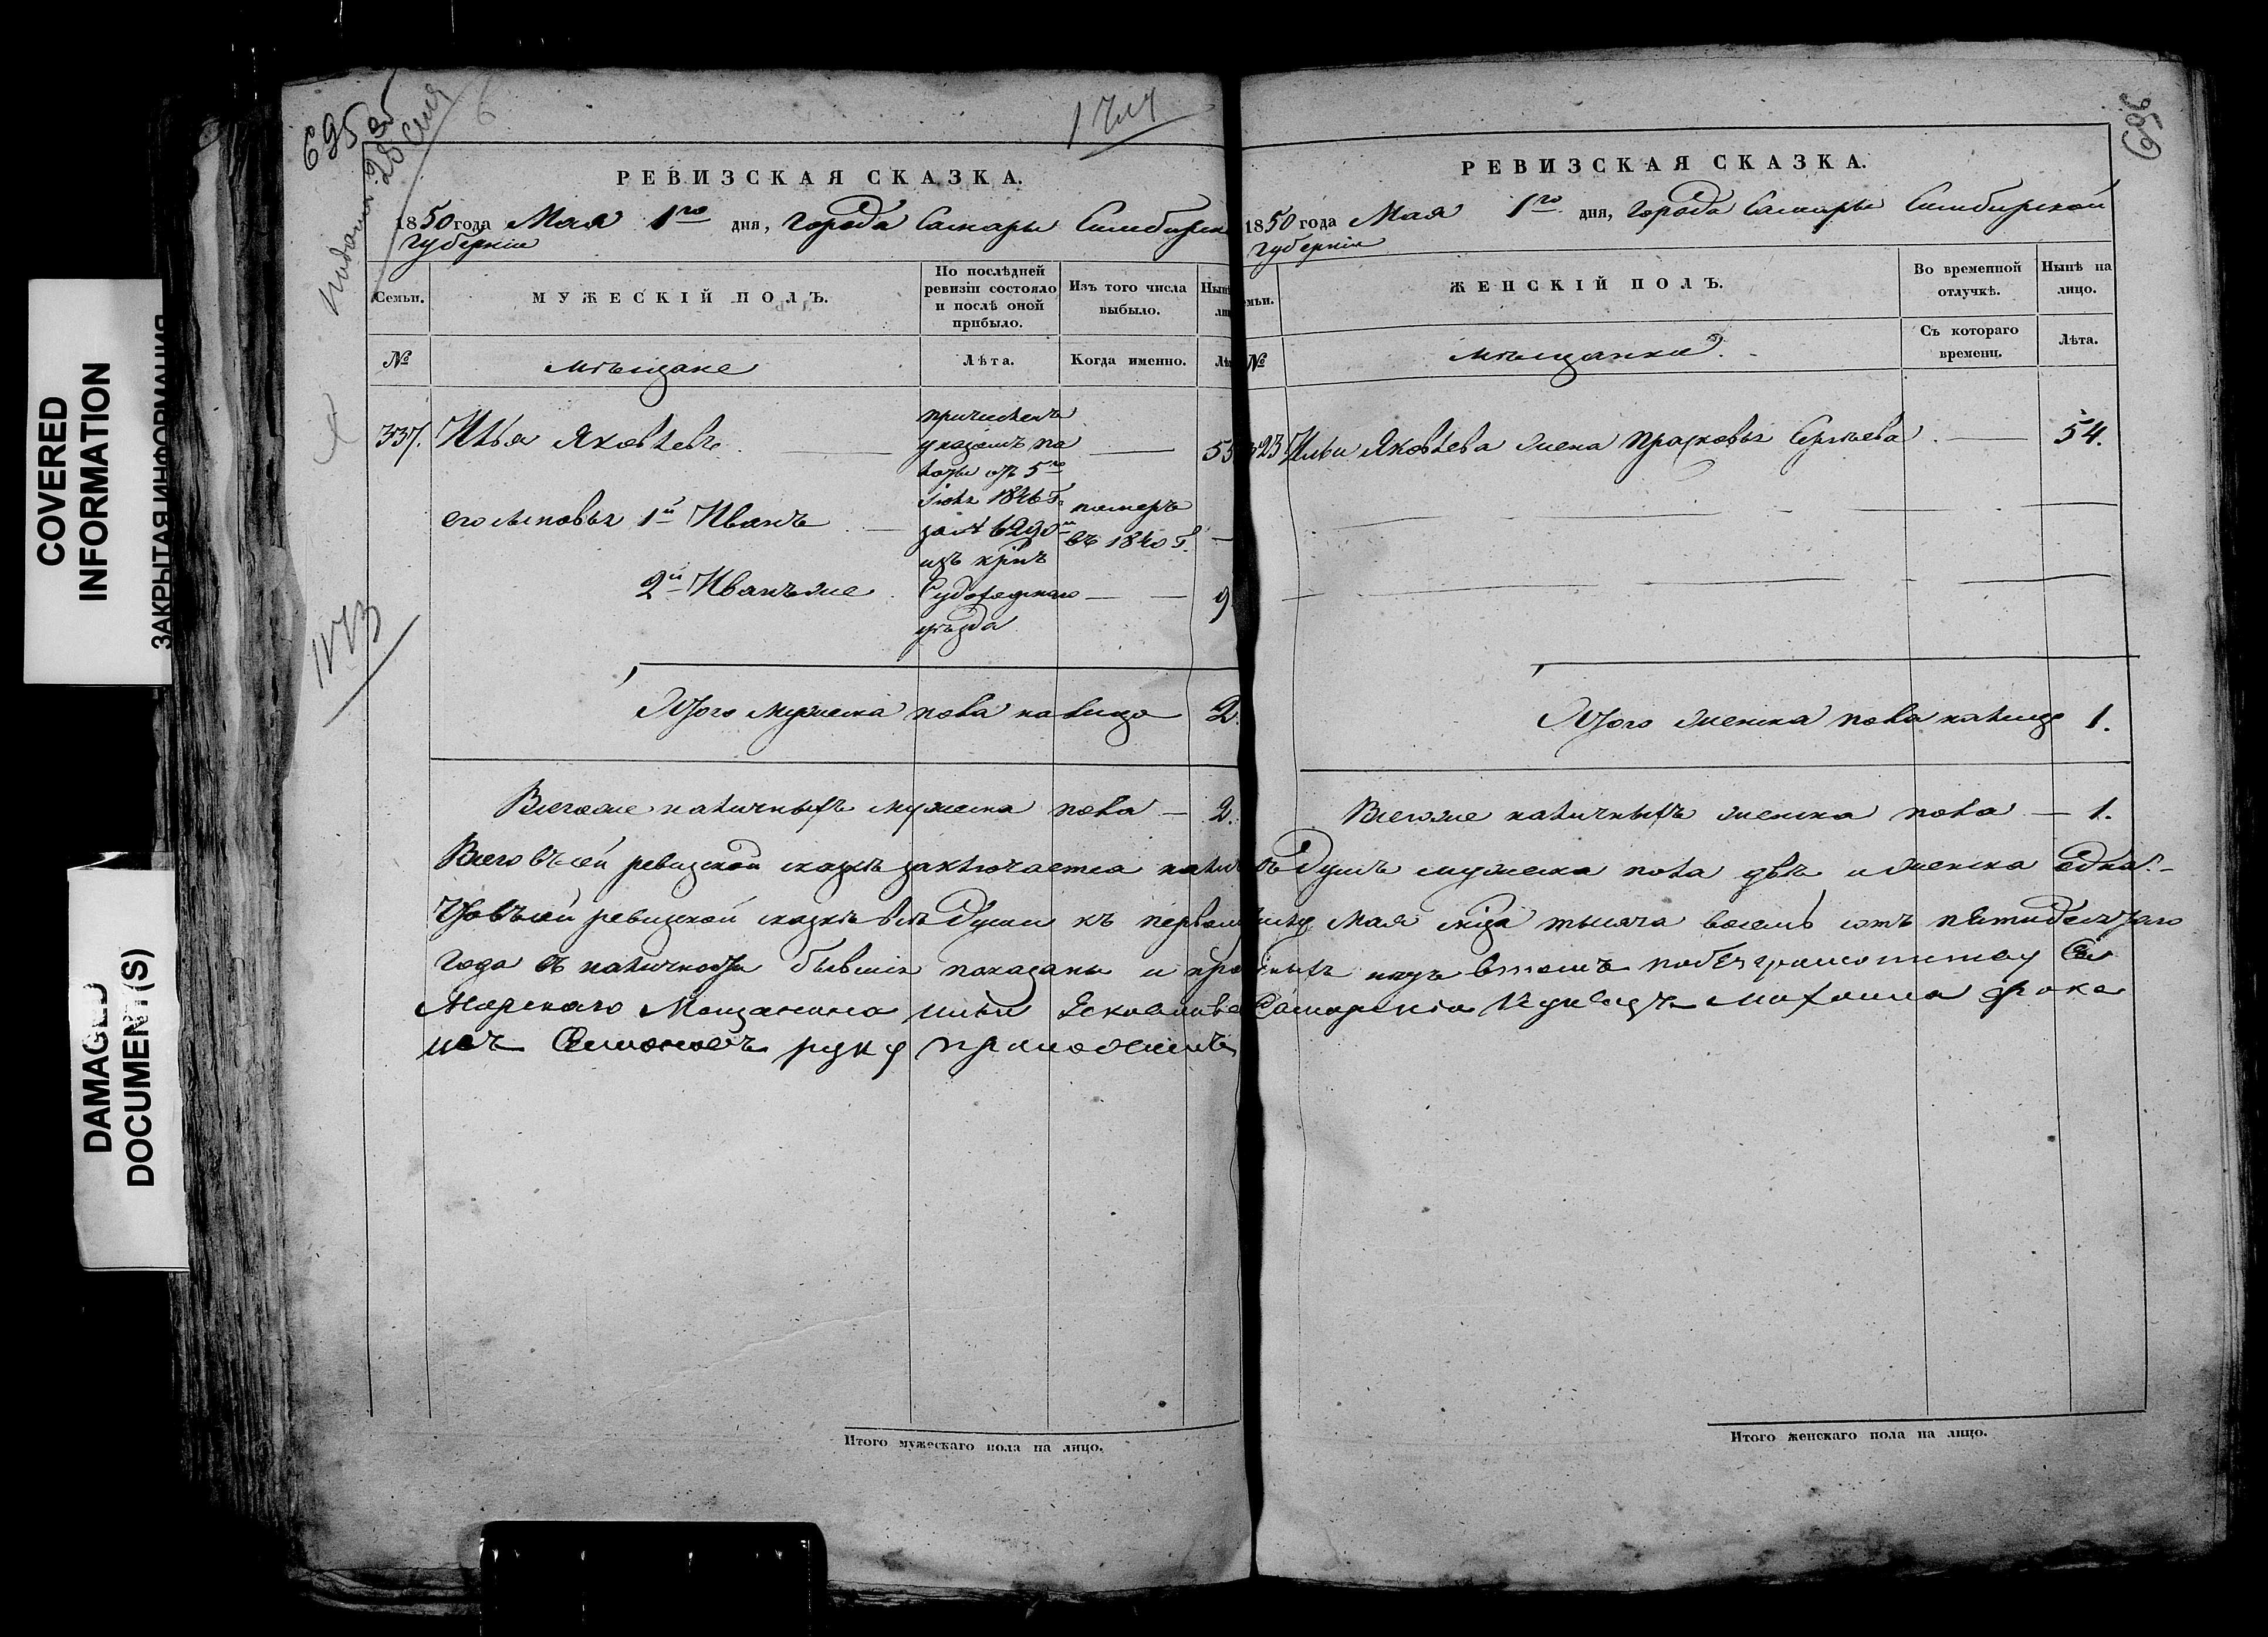 COVERED
INFORMATION
ЗАКРЫТАЯ ИНФОРМАЦИЯ
DAMAGED
DOCUMENT(S)
695
РЕВИЗСКАЯ СКАЗКА.
1850 года Мая 1го дня, города Самары Симбирск
губернии
Семьи.
МУЖЕСКІЙ ПОЛЪ.
По послѣдней
ревизіи состояло
и послѣ оной
прибыло.
Изъ того числа
выбыло.
№
мѣщане
Лѣта.
Когда именно.
337. Илья Яковлевъ 55
причисленъ
указомъ па
латы отъ 5го
за № 6290м
изъ крпъ
уѣзда
его сыновья 1й Иванъ
померъ
въ 1840 г.
2й Иванъ же 9
Итого мужеска пола на лицо 2.
Всего же наличныхъ мужеска пола 2.
696
РЕВИЗСКАЯ СКАЗКА.
1850 года Мая 1го дня, города Самары Симбирской
губернии
ЖЕНСКІЙ ПОЛЪ.
Во временной
отлучкѣ.
Нынѣ на
лицо.
Съ котораго
времени.
Лѣта.
№
мѣщанки
Ильи Яковлева жена Прасковья Сергѣева 54.
Итого женска пола налицо 1.
Всего же наличныхъ женска пола 1.
Всего въ сей ревизской сказкѣ заключается налич душъ мужеска пола двѣ и женска одна.
Что въ сей ревизской сказкѣ всѣ души къ первому числу Мая мца тысяча восемь сотъ пятидесятаго
года въ наличности бывшія показаны и
марскаго Мещанина ильи Самарскій Купецъ
руку приложилъ
Итого мужескаго пола на лицо.
Итого женскаго пола на лицо.